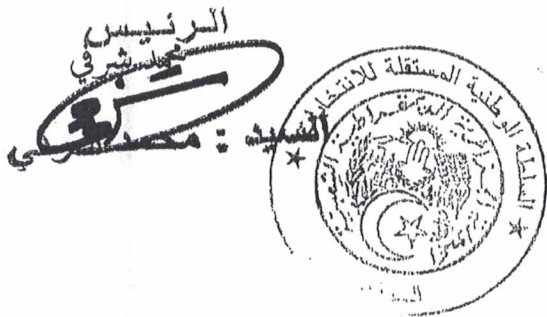 الرئيس
محمد شرفي
السيد : محمد
السلطة الوطنية المستقلة للانتخابات
الجمهورية الجزائرية الديمقراطية الشعبية